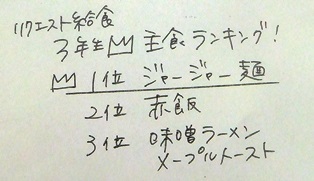 リクエスト給食
3年生 主食ランキング!
1位 ジャージャー麺
2位 赤飯
3位 味噌ラーメン
メープルトースト